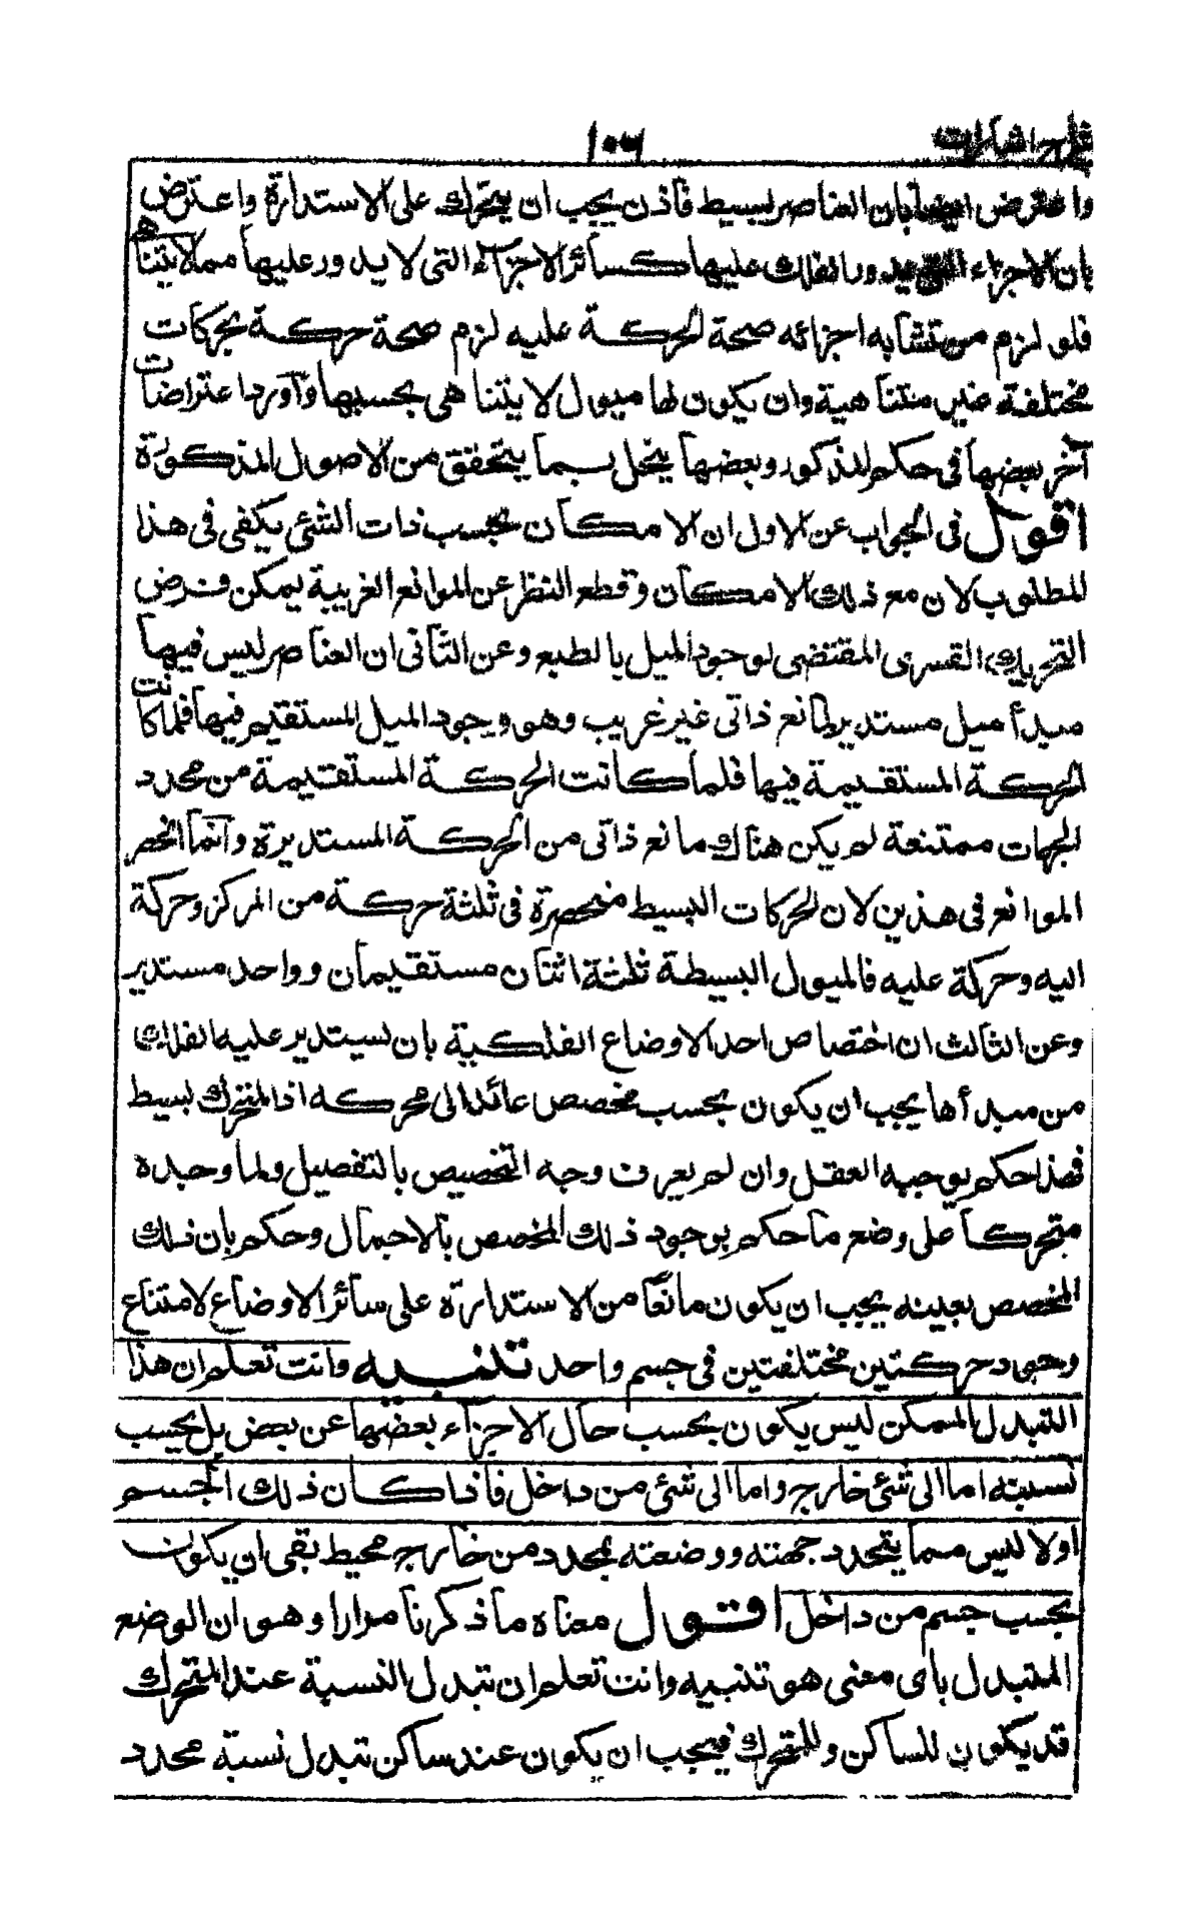 شرح اشارات ١٠٦
واعترض ايضا بان العناصر بسيط فاذن يجب ان يتحرك على الاستدارة واعترض
بان الاجزاء التى يدور الفلك عليها كسائر الاجزاء التى لا يدور عليها مما لا يتناهى
فلو لزم من تشابه اجزائه صحة الحركة عليه لزم صحة حركة بحركات
مختلفة غير متناهية وان يكون لها ميول لا يتناهى بحسبها واورد اعتراضات
آخر بعضها فى حكم المذكور وبعضها ينحل بما يتحقق من الاصول المذكورة
اقول فى الجواب عن الاول ان الامكان بحسب ذات الشئ يكفى فى هذا
المطلوب لان مع ذلك الامكان وقطع النظر عن الموانع الغريبة يمكن فرض
التحريك القسرى المقتضى لوجود الميل بالطبع وعن الثانى ان العناصر ليس فيها
مبدأ ميل مستدير لمانع ذاتى غير غريب وهو وجود الميل المستقيم فيها فلما كانت
الحركة المستقيمة فيها فلما كانت الحركة المستقيمة من محدد
الجهات ممتنعة لم يكن هناك مانع ذاتى من الحركة المستديرة وانما انحصر
الموانع فى هذين لان الحركات البسيط منحصرة فى ثلثة حركة من المركز وحركة
اليه وحركة عليه فالميول البسيطة ثلثة اثنان مستقيمان وواحد مستدير
وعن الثالث ان اختصاص احد الاوضاع الفلكية بان يستدير عليه الفلك
من مبدأها يجب ان يكون بحسب مخصص عائد الى محركه اذ المتحرك بسيط
فهذا حكم يوجبه العقل وان لم يعرف وجه التخصيص بالتفصيل ولما وجده
متحركا على وضع ما حكم بوجود ذلك المخصص بالاجمال وحكم بان ذلك
المخصص بعينه يجب ان يكون مانعا من الاستدارة على سائر الاوضاع لامتناع
وجود حركتين مختلفتين فى جسم واحد تنبيه وانت تعلم ان هذا
التبدل الممكن ليس يكون بحسب حال الاجزاء بعضها عن بعض بل بحسب
نسبته اما الى شئ خارج واما الى شئ من داخل فاذا كان ذلك الجسم
اولا ليس مما يتحدد جهته ووضعته بمحدد من خارج محيط بقى ان يكون
بحسب جسم من داخل اقول معناه ما ذكرنا مرارا وهو ان الوضع
المتبدل باى معنى هو تنبيه وانت تعلم ان تبدل النسبة عند المتحرك
قد يكون للساكن وللمتحرك فيجب ان يكون عند ساكن تبدل نسبة محدد